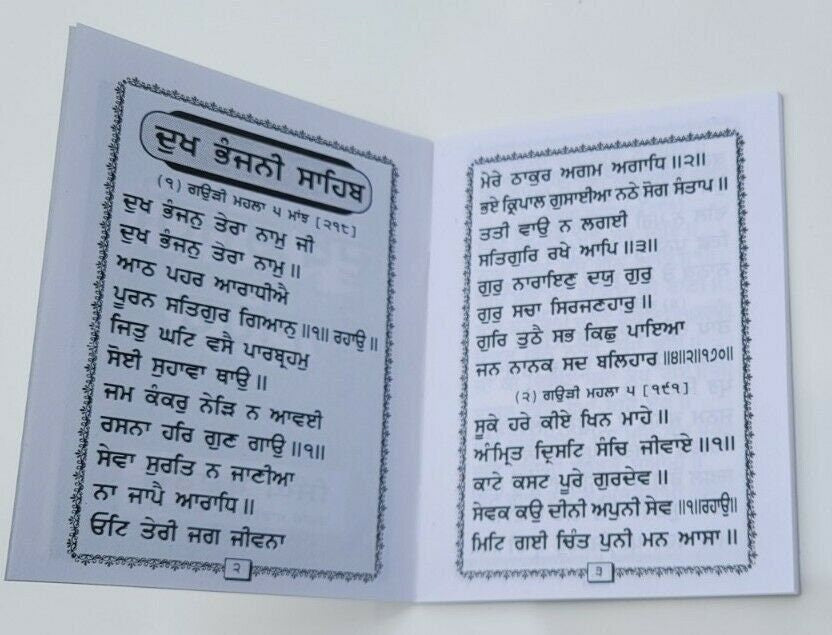 ਦੁਖ ਭੰਜਨੀ ਸਾਹਿਬ
(੧) ਗਉੜੀ ਮਹਲਾ ੫ ਮਾਂਝ [੨੧੮]
ਦੁਖ ਭੰਜਨੁ ਤੇਰਾ ਨਾਮੁ ਜੀ
ਦੁਖ ਭੰਜਨੁ ਤੇਰਾ ਨਾਮੁ ॥
ਆਠ ਪਹਰ ਆਰਾਧੀਐ
ਪੂਰਨ ਸਤਿਗੁਰ ਗਿਆਨੁ ॥੧॥ ਰਹਾਉ ॥
ਜਿਤੁ ਘਟਿ ਵਸੈ ਪਾਰਬ੍ਰਹਮੁ
ਸੋਈ ਸੁਹਾਵਾ ਥਾਉ ॥
ਜਮ ਕੰਕਰੁ ਨੇੜਿ ਨ ਆਵਈ
ਰਸਨਾ ਹਰਿ ਗੁਣ ਗਾਉ ॥੧॥
ਸੇਵਾ ਸੁਰਤਿ ਨ ਜਾਣੀਆ
ਨਾ ਜਾਪੈ ਆਰਾਧਿ ॥
ਓਟਿ ਤੇਰੀ ਜਗ ਜੀਵਨਾ
੨
ਮੇਰੇ ਠਾਕੁਰ ਅਗਮ ਅਗਾਧਿ ॥੨॥
ਭਏ ਕ੍ਰਿਪਾਲ ਗੁਸਾਈਆ ਨਠੇ ਸੋਗ ਸੰਤਾਪ ॥
ਤਤੀ ਵਾਉ ਨ ਲਗਈ
ਸਤਿਗੁਰਿ ਰਖੇ ਆਪਿ ॥੩॥
ਗੁਰੁ ਨਾਰਾਇਣੁ ਦਯੁ ਗੁਰੁ
ਗੁਰੁ ਸਚਾ ਸਿਰਜਣਹਾਰੁ ॥
ਗੁਰਿ ਤੁਠੈ ਸਭ ਕਿਛੁ ਪਾਇਆ
ਜਨ ਨਾਨਕ ਸਦ ਬਲਿਹਾਰ ॥੪॥੨॥੧੭੦॥
(੨) ਗਉੜੀ ਮਹਲਾ ੫ [੧੯੧]
ਸੂਕੇ ਹਰੇ ਕੀਏ ਖਿਨ ਮਾਹੇ ॥
ਅੰਮ੍ਰਿਤ ਦ੍ਰਿਸਟਿ ਸੰਚਿ ਜੀਵਾਏ ॥੧॥
ਕਾਟੇ ਕਸਟ ਪੂਰੇ ਗੁਰਦੇਵ ॥
ਸੇਵਕ ਕਉ ਦੀਨੀ ਅਪੁਨੀ ਸੇਵ ॥੧॥ਰਹਾਉ॥
ਮਿਟਿ ਗਈ ਚਿੰਤ ਪੁਨੀ ਮਨ ਆਸਾ ॥
੩